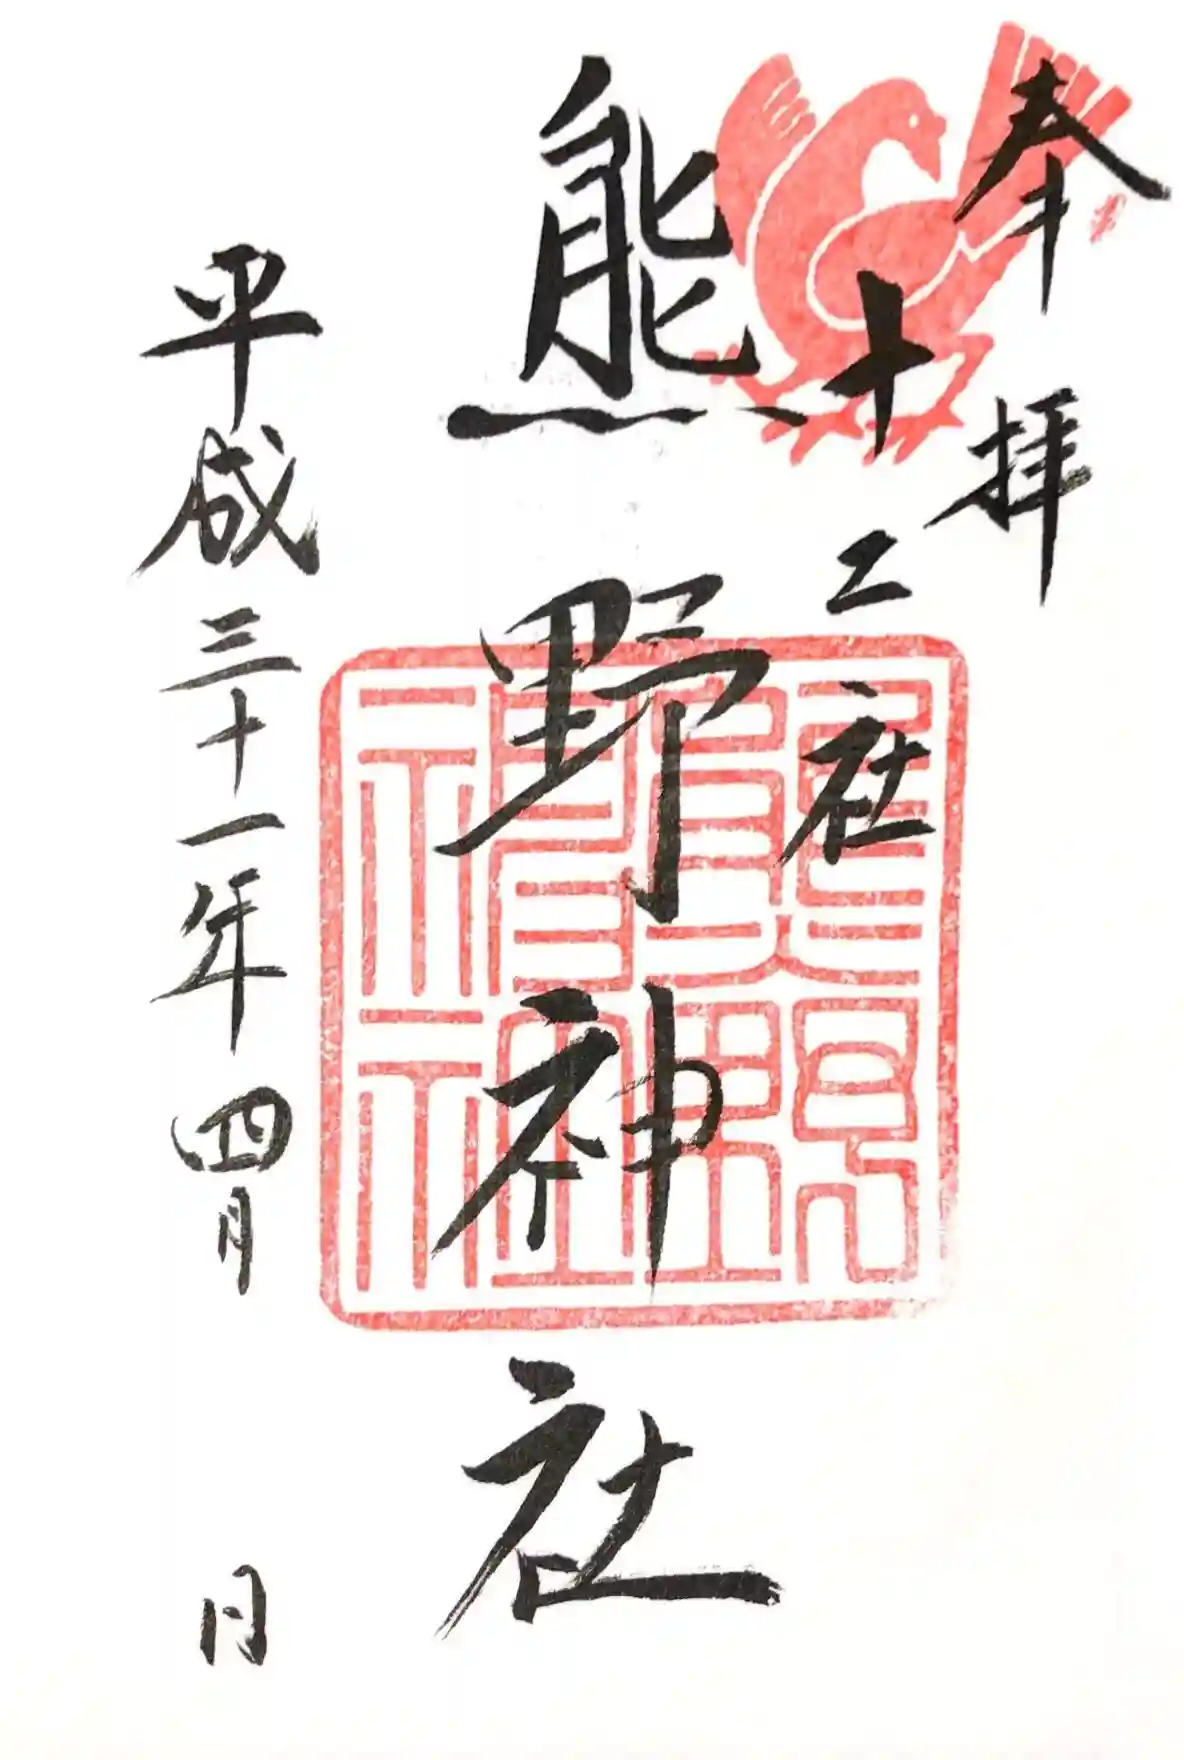 奉拝
十二社
熊野神社
平成三十一年四月 日